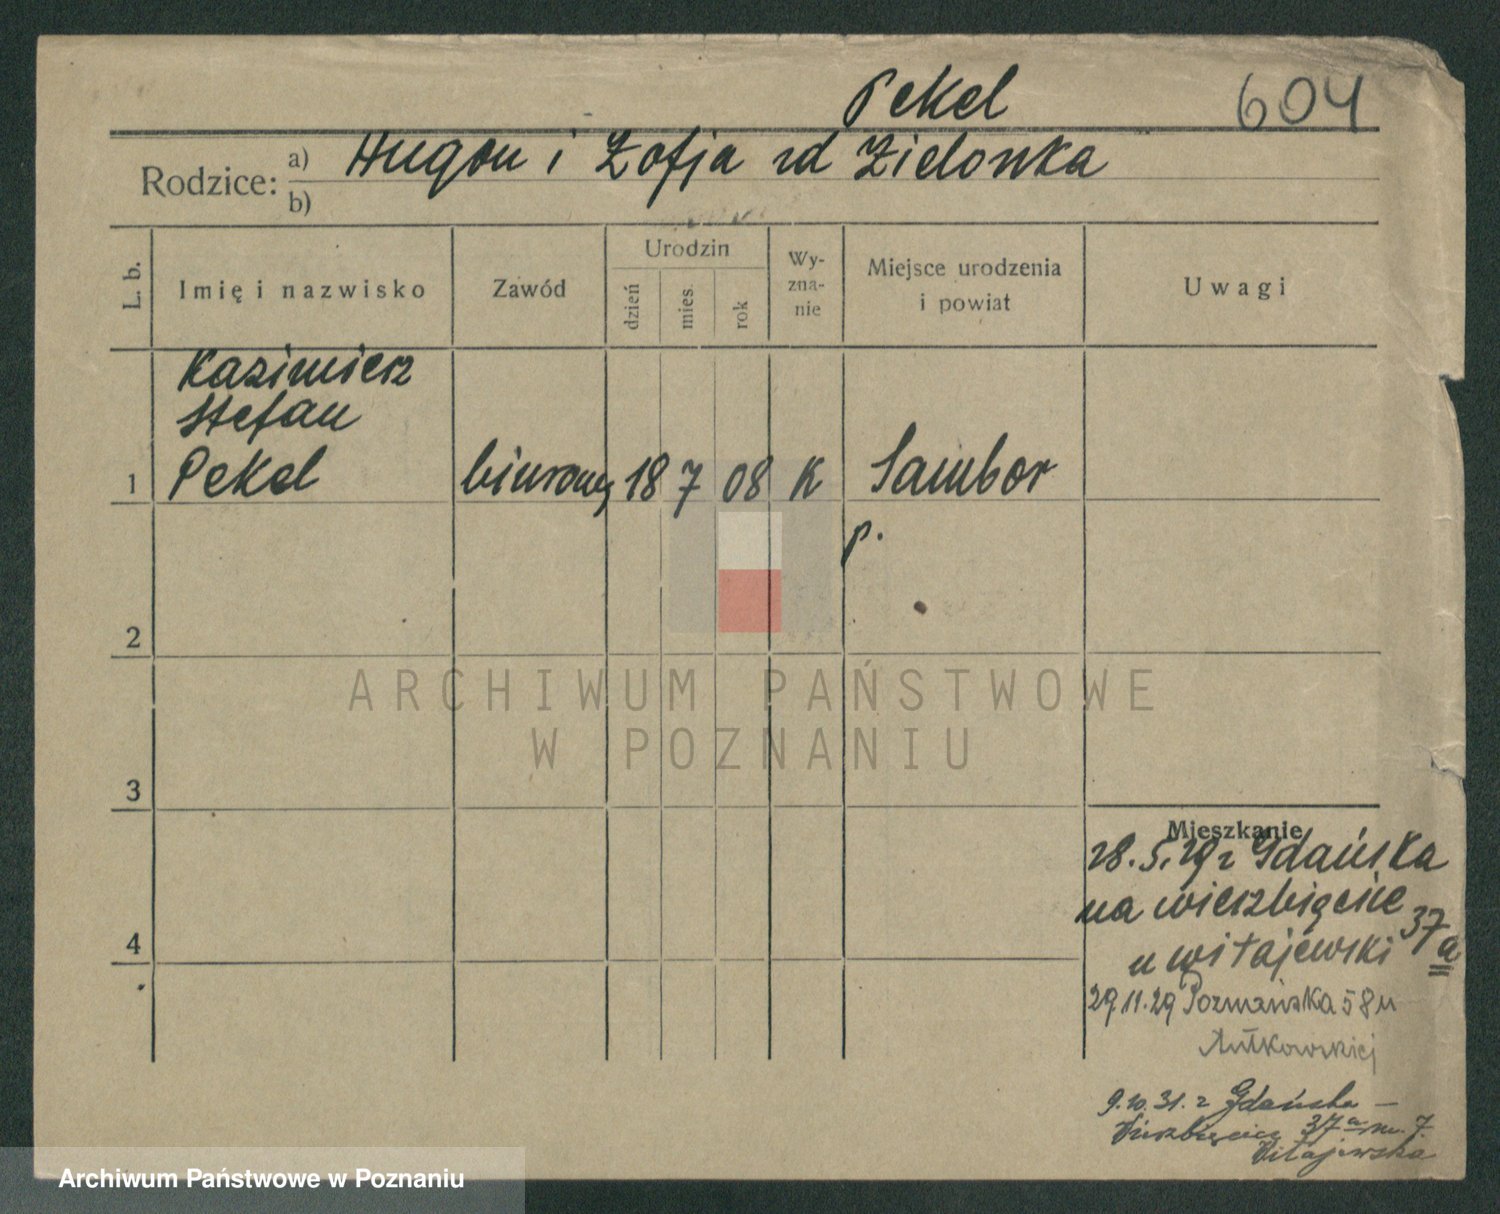 Pekel 604
Rodzice: a) Hugon i Zofja zd Zielonka
b)
L. b.
Imię i nazwisko
Zawód
Urodzin
dzień mies. rok
Wy-
zna-
nie
Miejsce urodzenia
i powiat
Uwagi
Kazimierz
Stefan
1 Pekel biurowy 18 7 08 K Sambor
p.
2
ARCHIWUM PAŃSTWOWE
W POZNANIU
3
Mieszkanie
28.5.29 z Gdańska
na wierzbięcice 37a
u witajewski
29.11.29 Poznańska 58 u
9.10.31. z Gdańska –
Wierzbięcice 37a m. 7.
Witajewska
4
Archiwum Państwowe w Poznaniu